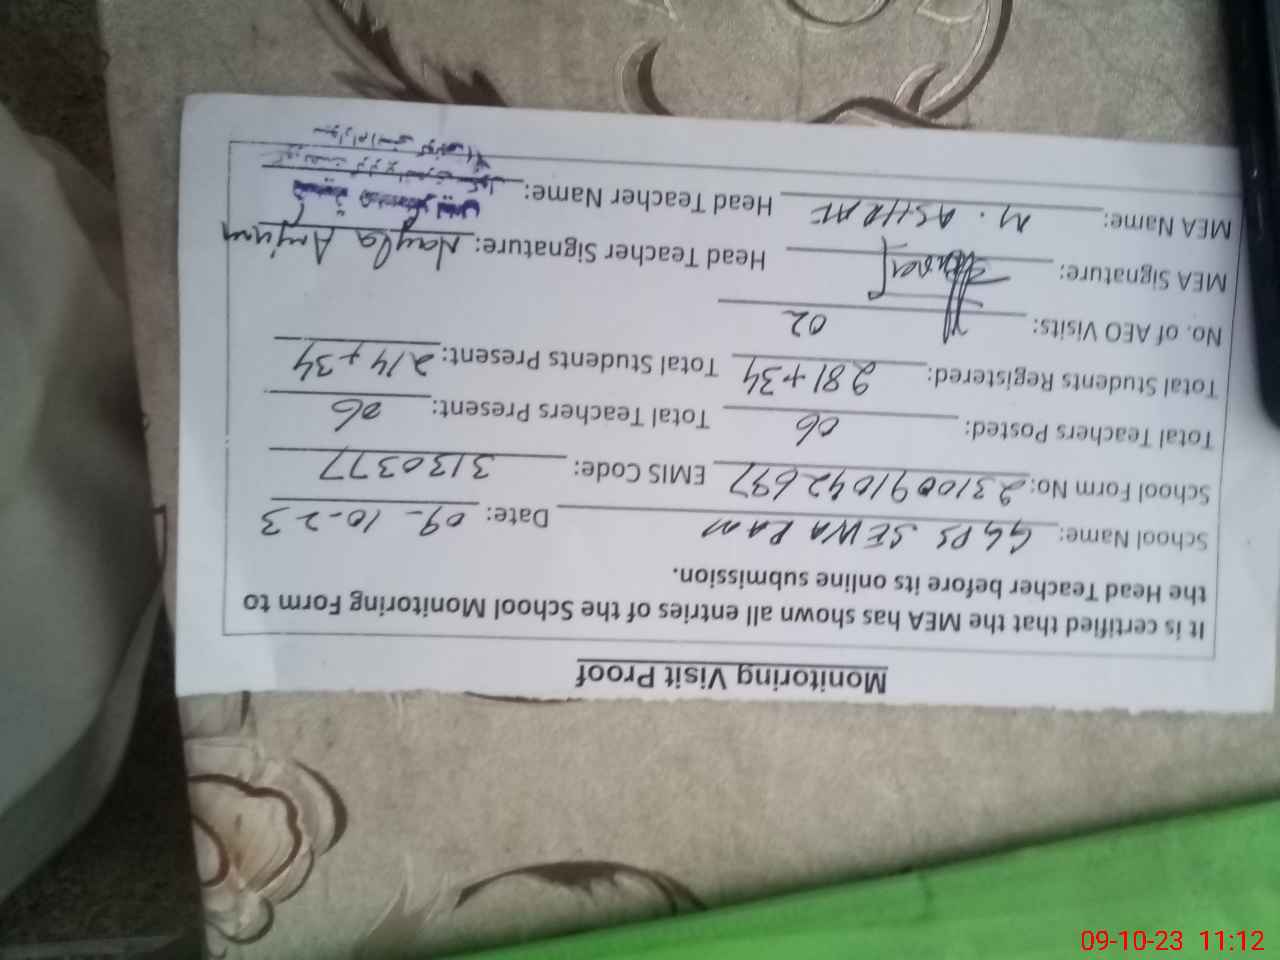 Monitoring Visit Proof
It is certified that the MEA has shown all entries of the School Monitoring Form to
the Head Teacher before its online submission.
School Name: GGPS SEWA RAM Date: 09-10-23
School Form No: 2310091042697 EMIS Code: 3130377
Total Teachers Posted: 06 Total Teachers Present: 06
Total Students Registered: 281+34 Total Students Present: 214+34
No. of AEO Visits: 02
MEA Signature: Head Teacher Signature: Nayla Anjum
MEA Name: M. ASHRAF Head Teacher Name:
09-10-23 11:12